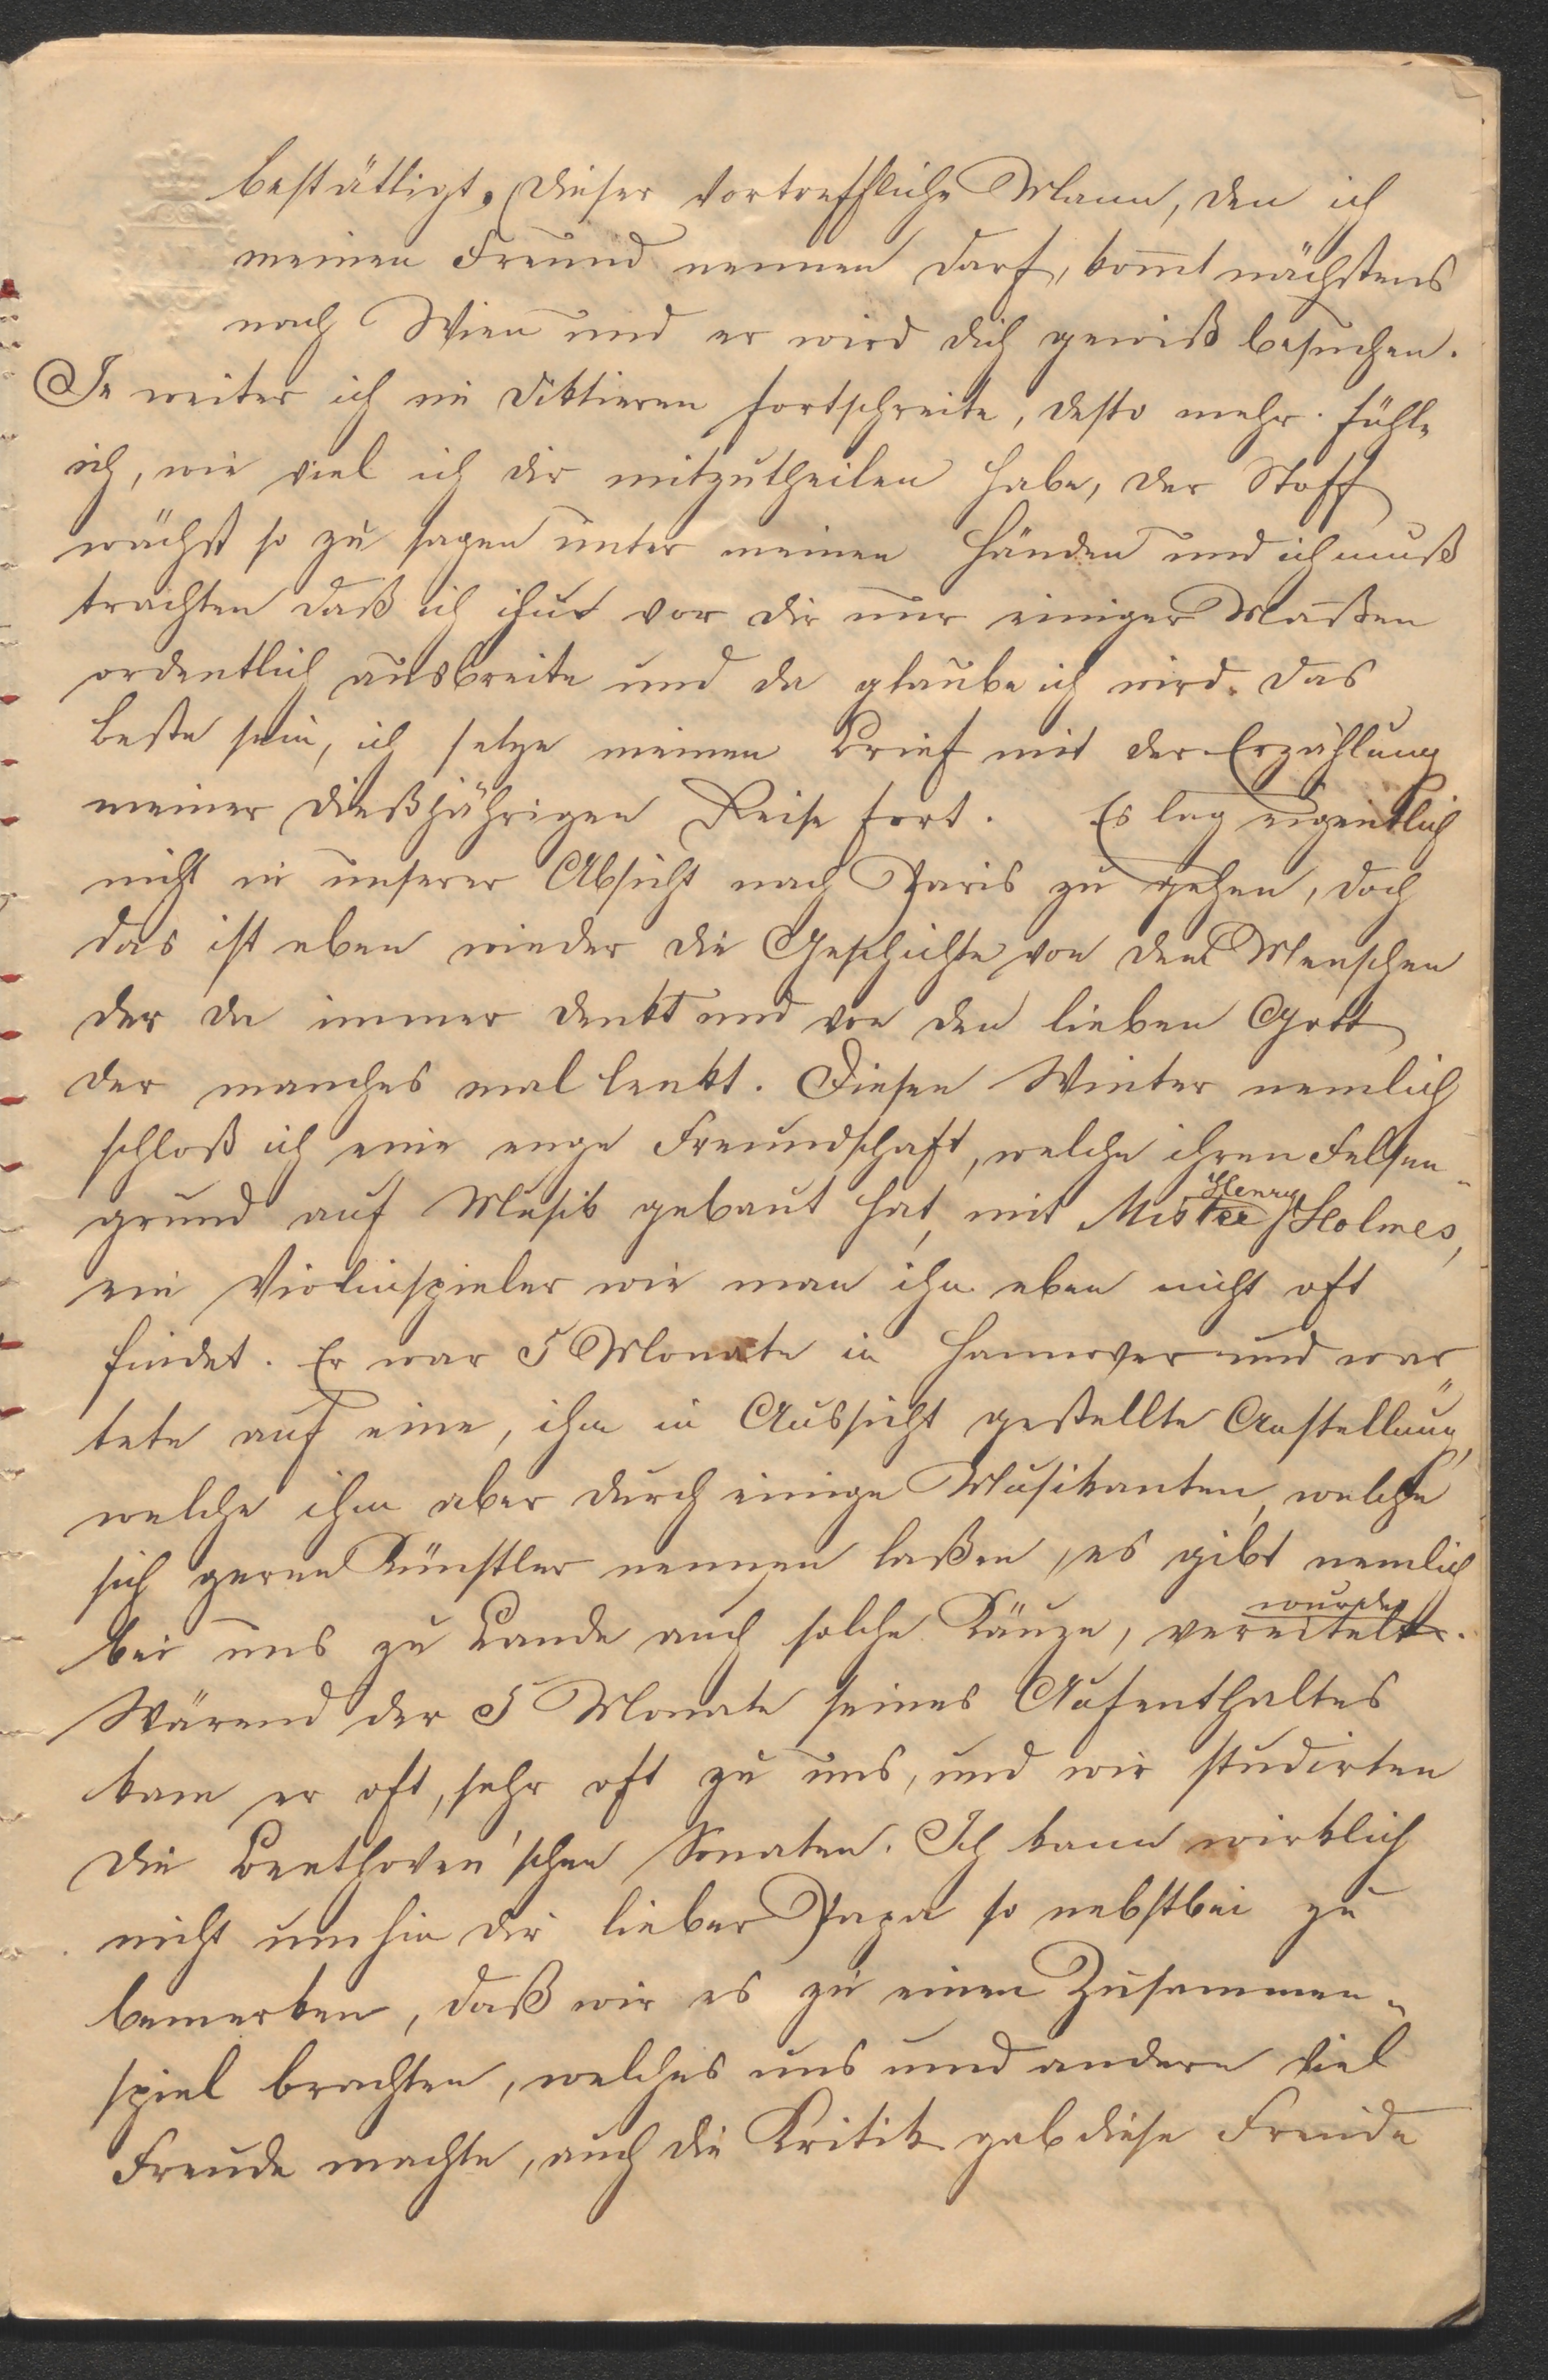 bestättigt. Dieser vortreffliche Mann, den ich
meinen Freund nennen darf, kom̄t nächstens
nach Wien und er wird dich gewiß besuchen.
Je weiter ich im Diktieren fortschreite, desto mehr fühle
ich, wie viel ich dir mitzutheilen habe, der Stoff
wächst so zu sagen unter meinen Händen und ich muß
trachten daß ich ihn vor dir nur einiger Maßen
ordentlich ausbreite und da glaube ich wird das
beste sein, ich setze meinen Brief mit der Erzählung
meiner dießjährigen Reise fort. Es lag eigentlich
nicht in unserer Absicht nach Paris zu gehen, doch
das ist eben wieder die Geschichte von dem Menschen
der da immer denkt und von den lieben Gott
der manches mal lenkt. Diesen Winter nemlich
schloß ich eine enge Freundschaft, welche ihren Felsen-
grund auf Musik gebaut hat, mit Mister Henry Holmes,
ein Violinspieler wie man ihn eben nicht oft
findet. Er war 5 Monate in Hannover und war
tete auf eine, ihm in Aussicht gestellte Anstellung,
welche ihm aber durch einige Musikanten, welche
sich gerne Künstler nennen laßen, es gibt nemlich
bei uns zu Lande auch solche Käuze, vereitelt wurde.
Wärend der 5 Monate seines Aufenthaltes
kam er oft, sehr oft zu uns, und wir studirten
die Beethoven'schen Sonaten. Ich kann wirklich
nicht umhin dir lieber Papa so nebstbei zu
bemerken, daß wir es zu einen Zusammen-
spiel brachten, welches uns und andern viel
Freude machte, auch die Kritik gab diese Freude